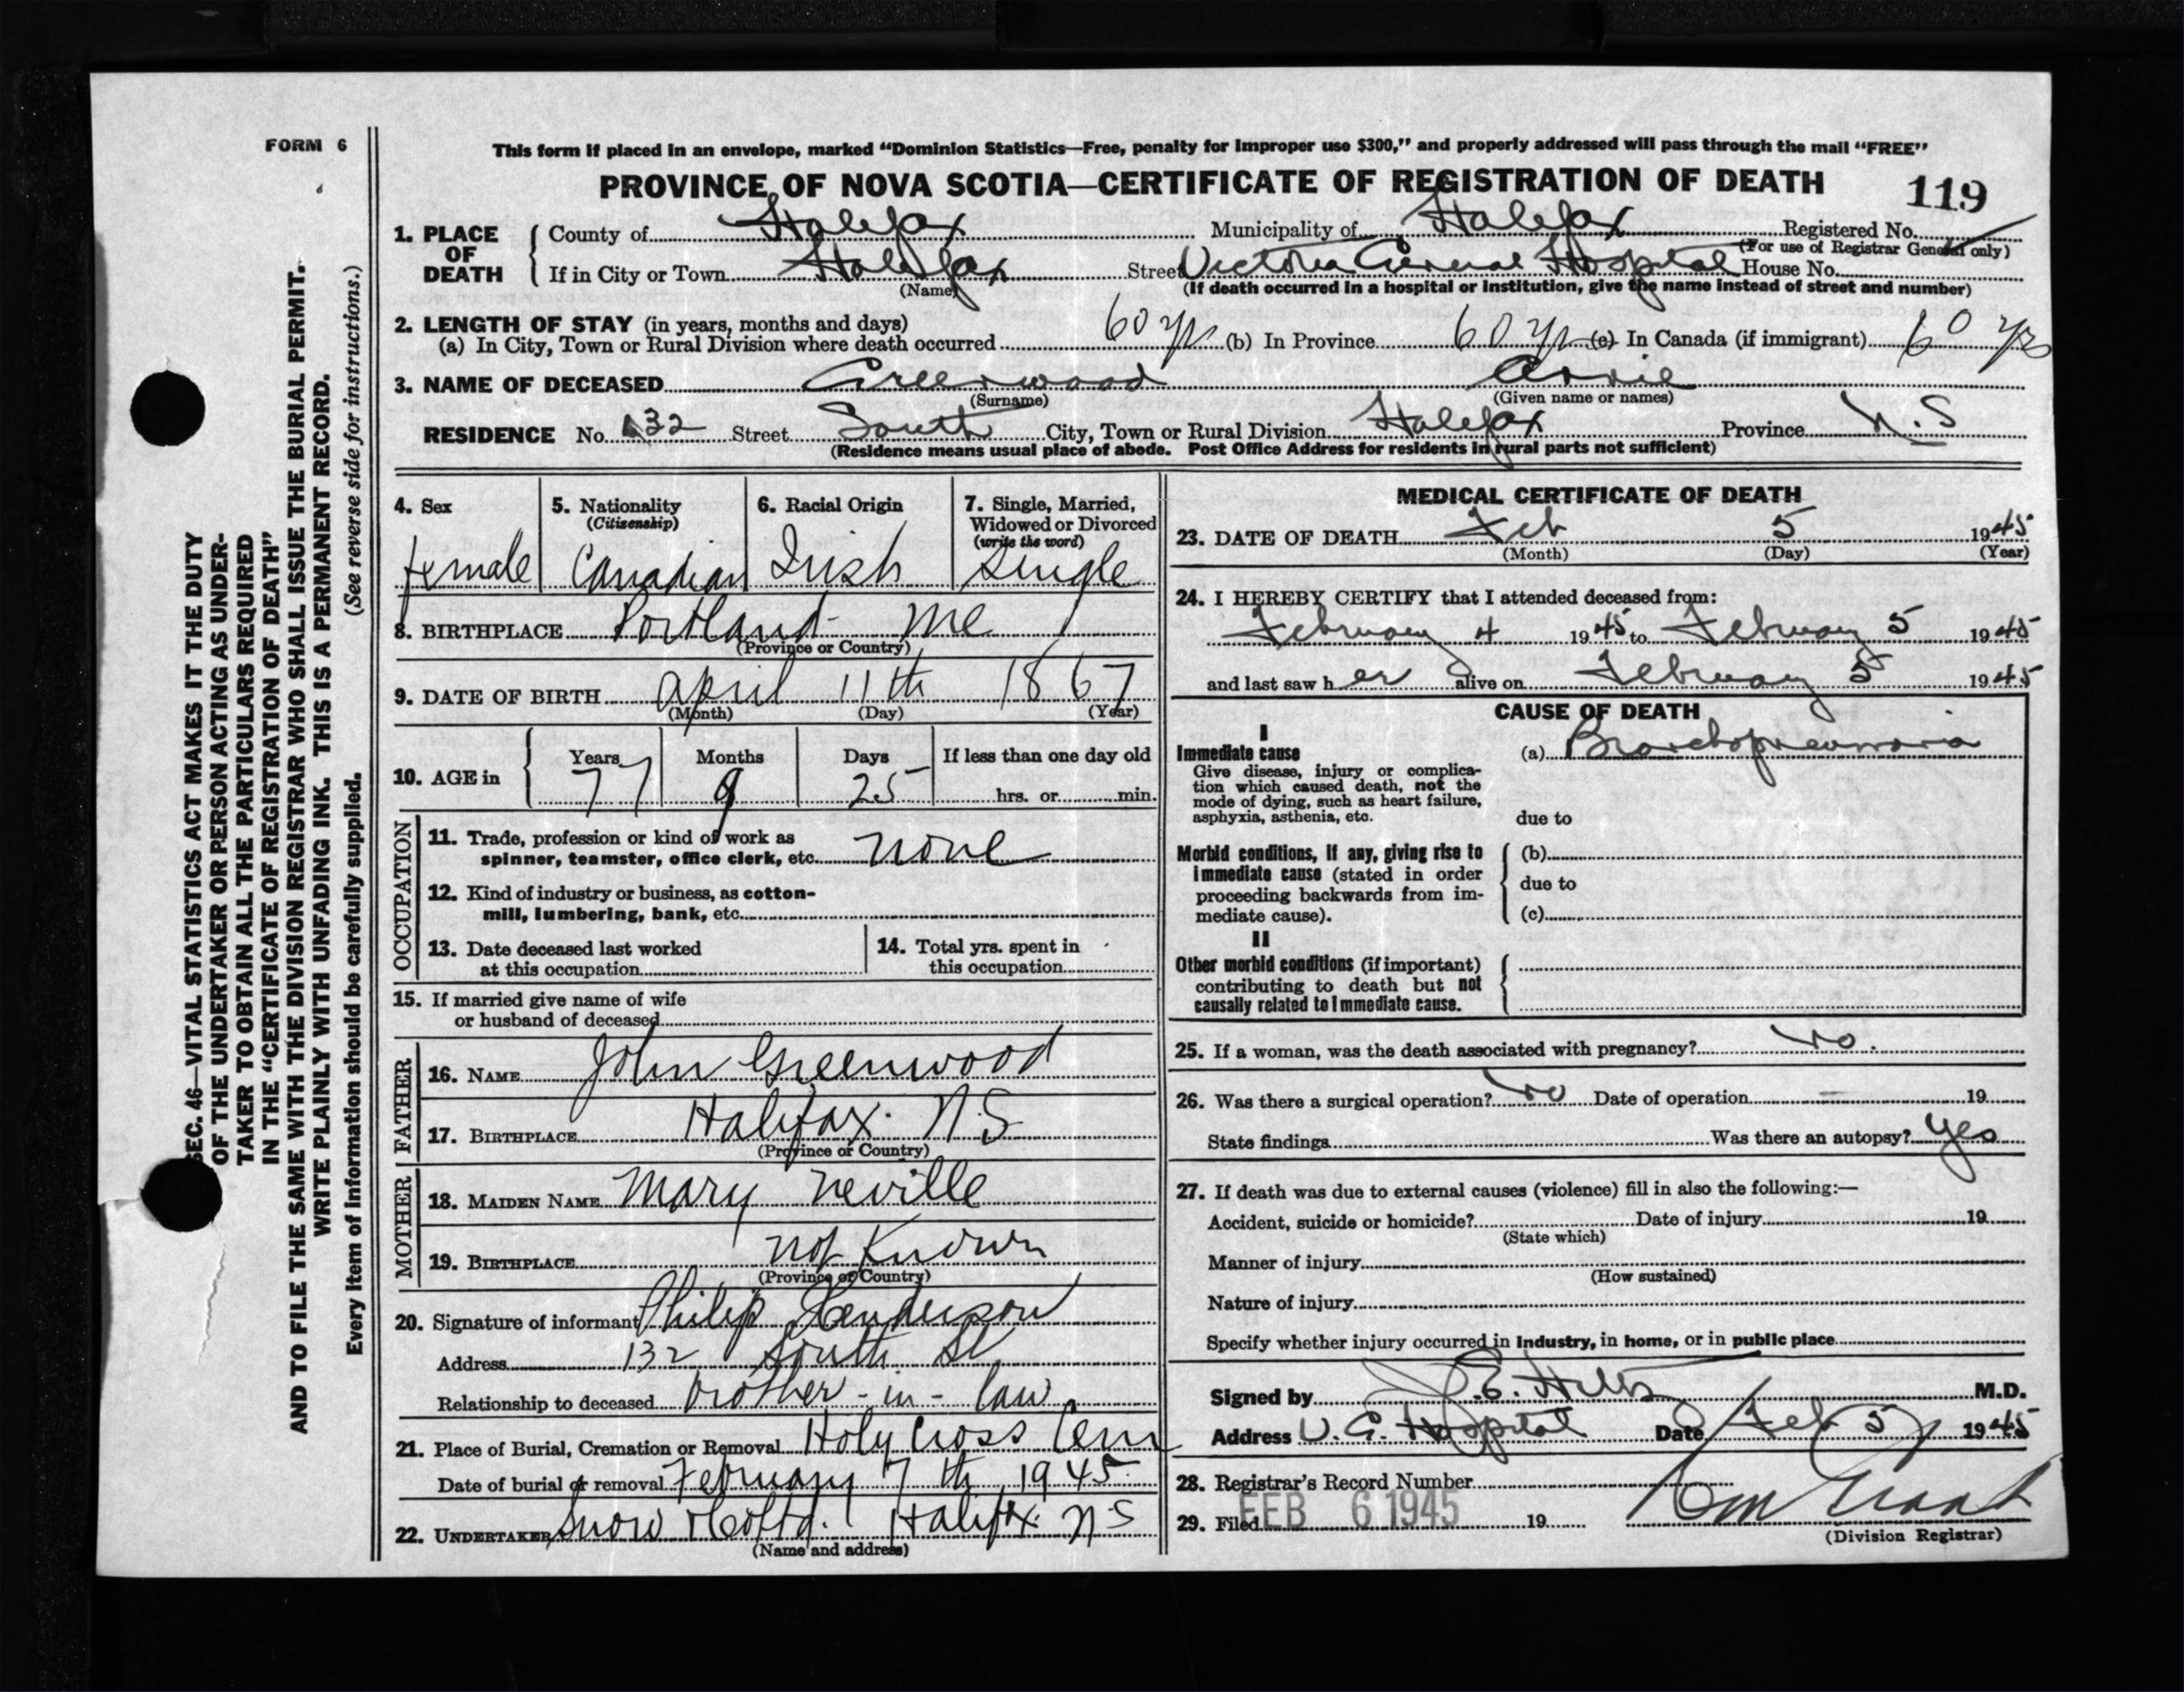 FORM 6
This form if placed in an envelope, marked “Dominion Statistics—Free, penalty for improper use $300,” and properly addressed will pass through the mail “FREE”
PROVINCE OF NOVA SCOTIA—CERTIFICATE OF REGISTRATION OF DEATH 119
1. PLACE OF DEATH
County of Halifax Municipality of Halifax Registered No.
(For use of Registrar General only)
If in City or Town Halifax Street Victoria General Hospital House No.
(Name) (If death occurred in a hospital or institution, give the name instead of street and number)
2. LENGTH OF STAY (in years, months and days)
(a) In City, Town or Rural Division where death occurred 60 yrs (b) In Province 60 yrs (c) In Canada (if immigrant) 60 yrs
3. NAME OF DECEASED Greenwood Annie
(Surname) (Given name or names)
RESIDENCE No. 132 Street South City, Town or Rural Division Halifax Province N.S
(Residence means usual place of abode. Post Office Address for residents in rural parts not sufficient)
4. Sex 5. Nationality 6. Racial Origin 7. Single, Married,
(Citizenship) Widowed or Divorced
(write the word)
female Canadian Irish Single
8. BIRTHPLACE Portland me
(Province or Country)
9. DATE OF BIRTH april 11th 1867
(Month) (Day) (Year)
10. AGE in Years Months Days If less than one day old
77 9 25 hrs. or min.
OCCUPATION
11. Trade, profession or kind of work as
spinner, teamster, office clerk, etc. none
12. Kind of industry or business, as cotton-
mill, lumbering, bank, etc.
13. Date deceased last worked 14. Total yrs. spent in
at this occupation this occupation
15. If married give name of wife
or husband of deceased
FATHER
16. NAME John Greenwood
17. BIRTHPLACE Halifax. N.S
(Province or Country)
MOTHER
18. MAIDEN NAME Mary Neville
19. BIRTHPLACE not Known
(Province or Country)
20. Signature of informant Philip Henderson
Address 132 South St
Relationship to deceased brother-in-law
21. Place of Burial, Cremation or Removal Holy Cross Cem
Date of burial or removal February 7th 1945
22. UNDERTAKER Snow & Co Ltd. Halifax. N S
(Name and address)
MEDICAL CERTIFICATE OF DEATH
23. DATE OF DEATH Feb 5 1945
(Month) (Day) (Year)
24. I HEREBY CERTIFY that I attended deceased from:
February 4 1945 to February 5 1945
and last saw her alive on February 5 1945
CAUSE OF DEATH
I
Immediate cause (a) Bronchopneumonia
Give disease, injury or complica-
tion which caused death, not the
mode of dying, such as heart failure,
asphyxia, asthenia, etc. due to
Morbid conditions, if any, giving rise to (b)
immediate cause (stated in order due to
proceeding backwards from im-
mediate cause). (c)
II
Other morbid conditions (if important)
contributing to death but not
causally related to immediate cause.
25. If a woman, was the death associated with pregnancy? No.
26. Was there a surgical operation? No Date of operation — 19
State findings Was there an autopsy? Yes
27. If death was due to external causes (violence) fill in also the following:—
Accident, suicide or homicide? Date of injury 19
(State which)
Manner of injury
(How sustained)
Nature of injury
Specify whether injury occurred in industry, in home, or in public place
Signed by M.D.
Address V. G. Hospital Date Feb 5 1945
28. Registrar's Record Number
29. Filed FEB 6 1945 19
(Division Registrar)
SEC. 46—VITAL STATISTICS ACT MAKES IT THE DUTY
OF THE UNDERTAKER OR PERSON ACTING AS UNDER-
TAKER TO OBTAIN ALL THE PARTICULARS REQUIRED
IN THE “CERTIFICATE OF REGISTRATION OF DEATH”
AND TO FILE THE SAME WITH THE DIVISION REGISTRAR WHO SHALL ISSUE THE BURIAL PERMIT.
WRITE PLAINLY WITH UNFADING INK. THIS IS A PERMANENT RECORD.
Every item of information should be carefully supplied. (See reverse side for instructions.)